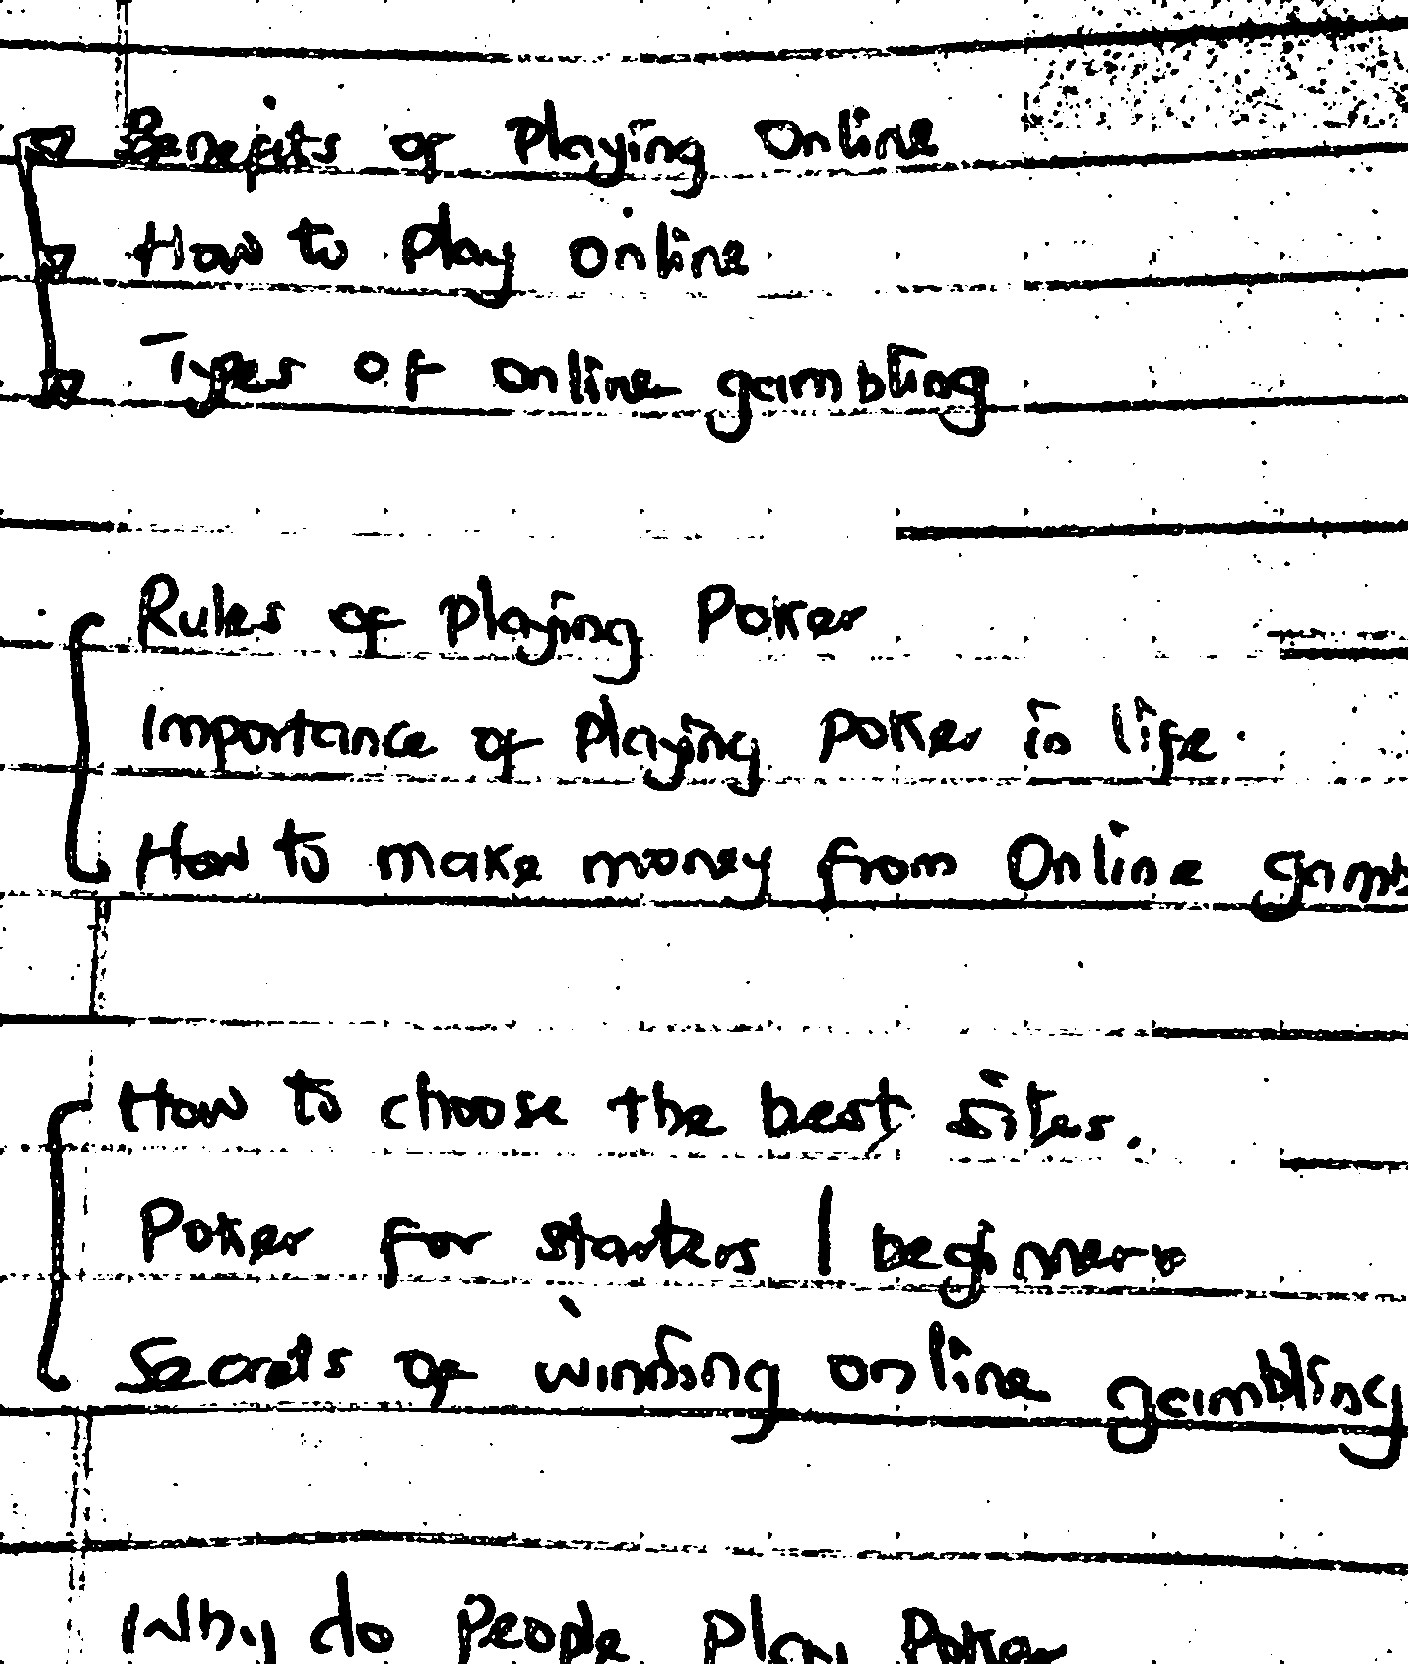 Benefits of Playing Online
How to Play online
Types of online gambling
Rules of playing Poker
Importance of playing poker in life.
How to make money from Online gamb
How to choose the best sites.
Poker for starters / beginners
Secrets of winning online gambling
Why do People Play Poker